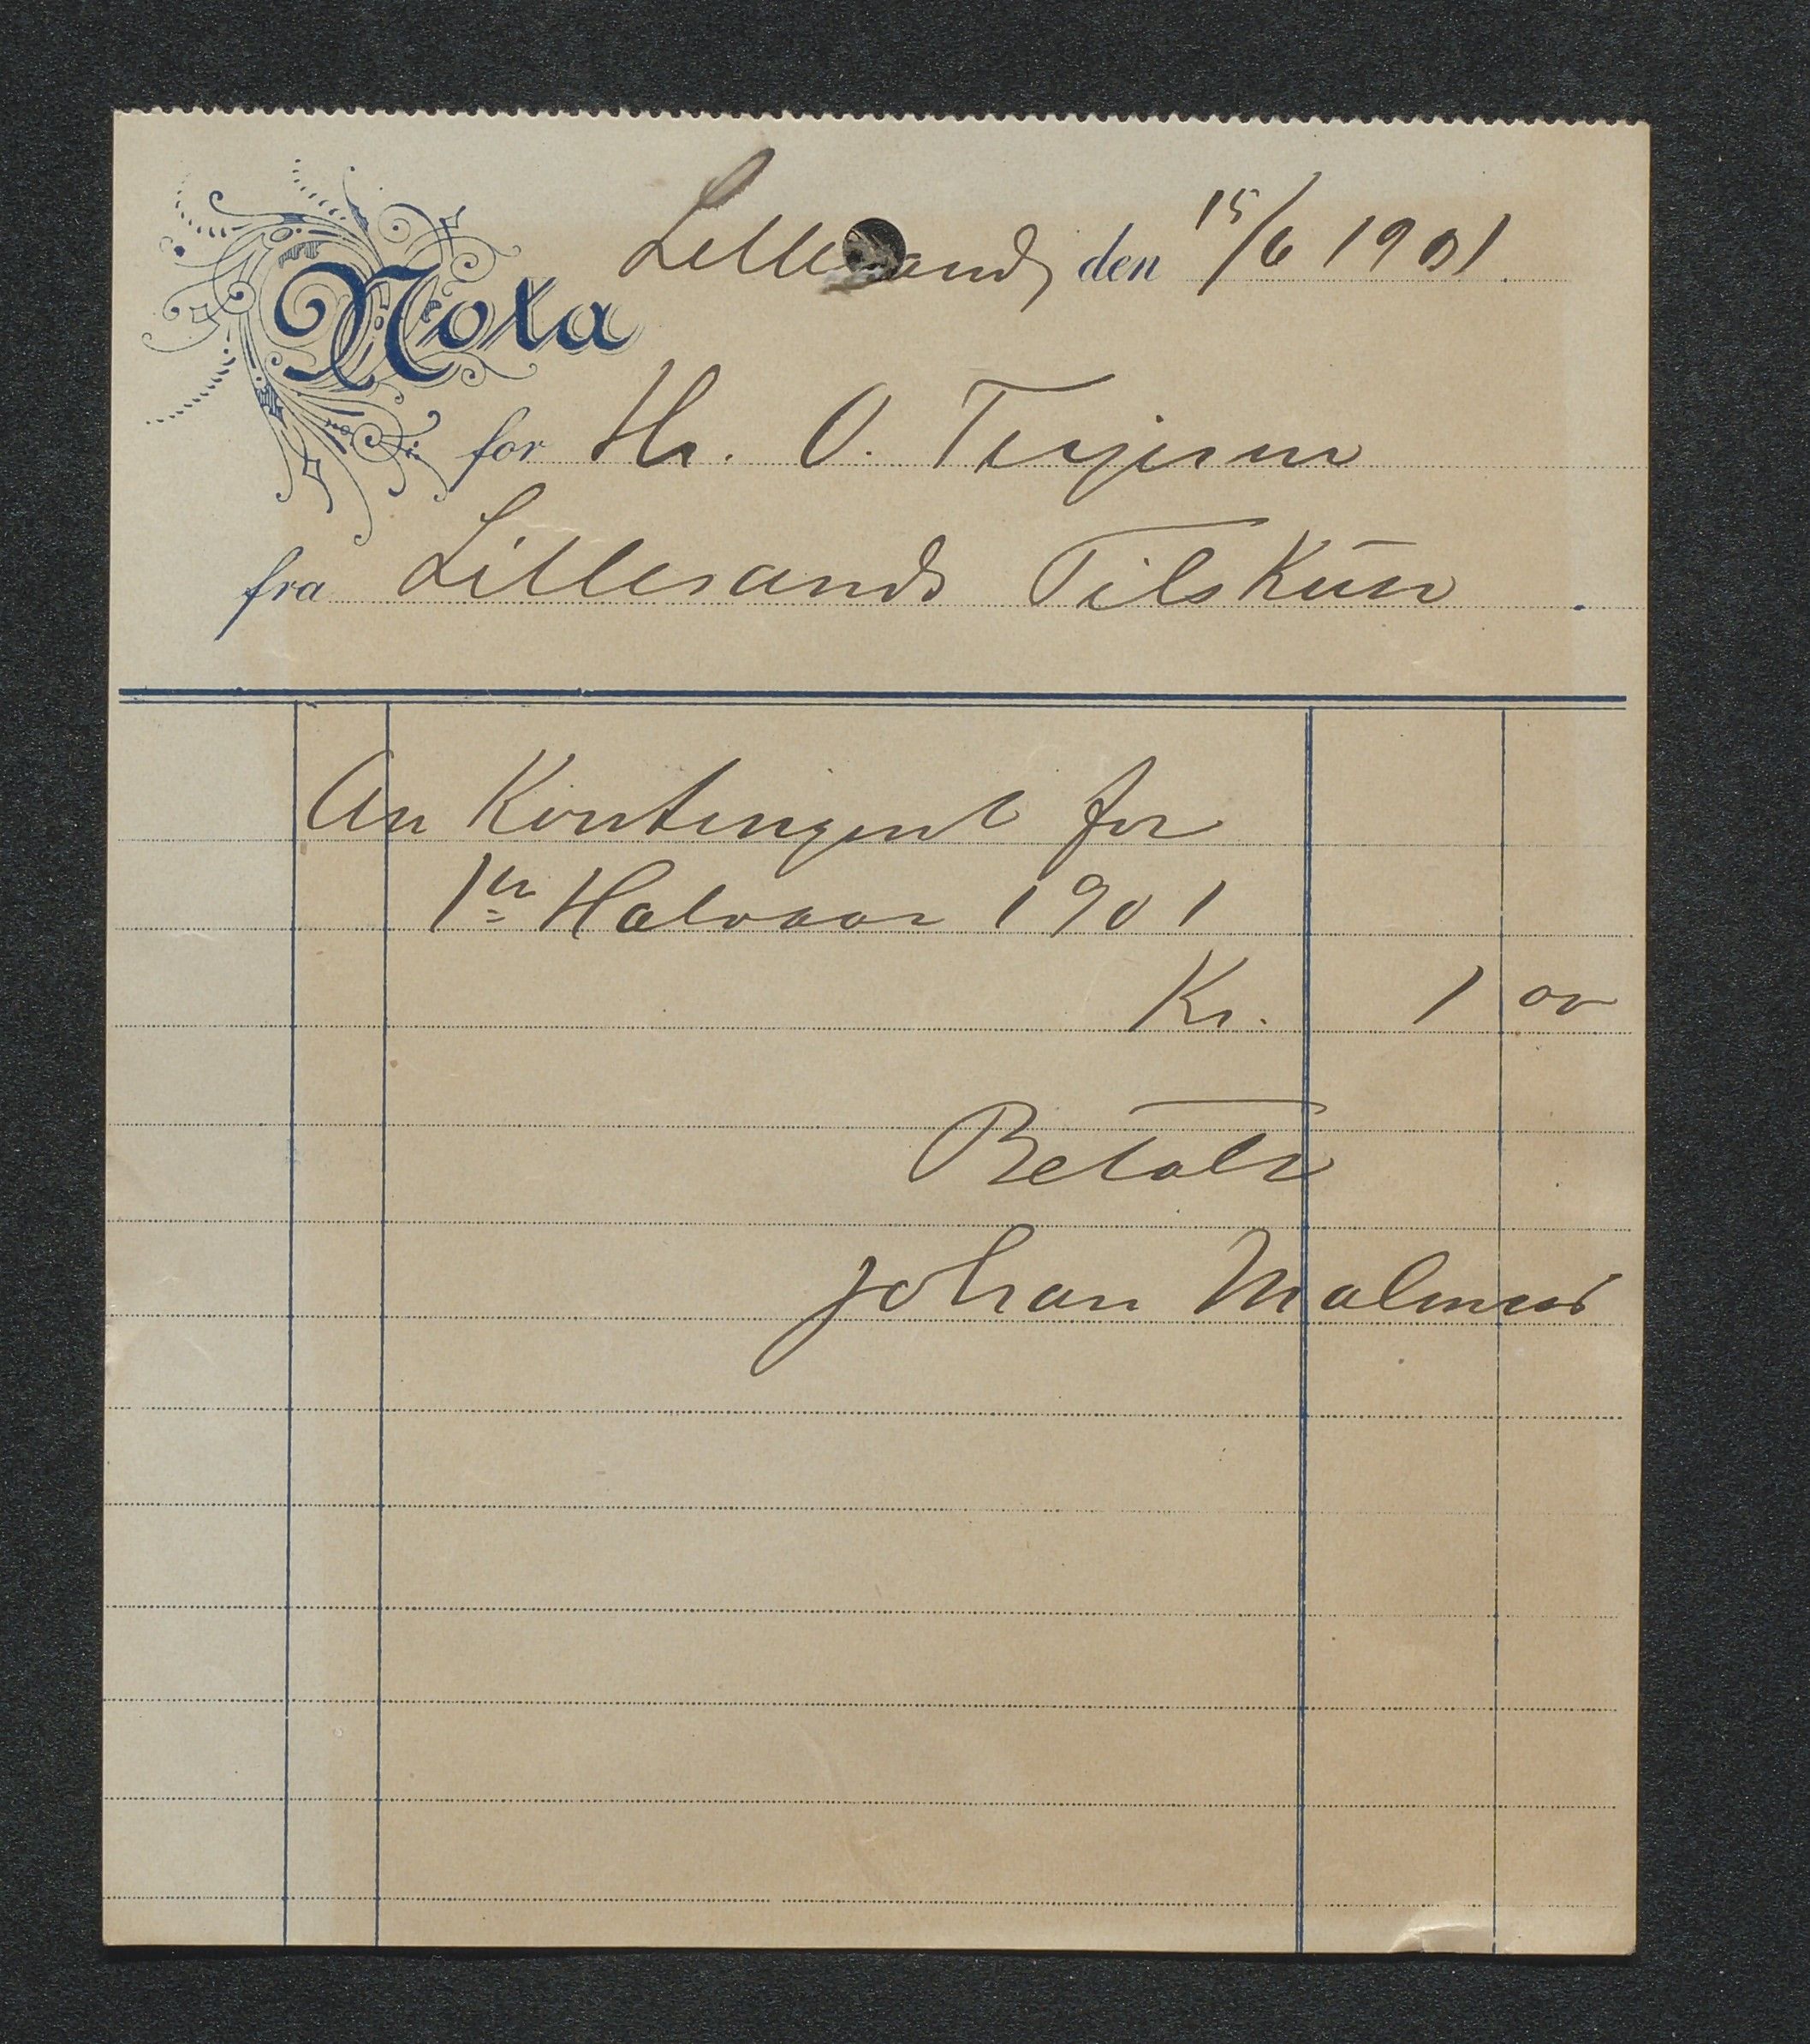 Lillesand, den 15/6 1901
Nota
for Hr. O. Terjesen
fra Lillesands
An Kontingent for
1ste Halvaar 1901
Kr. 1 00
Betalt
Johan